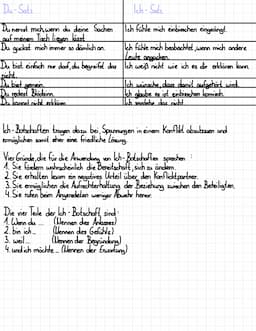 Du-Satz Ich-Satz
Du nervst mich, wenn du deine Sachen Ich fühle mich einbisschen eingeengt.
auf meinem Tisch liegen lässt.
Du guckst mich immer so dämlich an. Ich fühle mich beobachtet, wenn mich andere
Leute angucken.
Du bist einfach nur doof, du begreifst das Ich weiß nicht wie ich es dir erklären kann.
nicht.
Du bist gemein. Ich wünsche, dass damit aufgehört wird.
Du redest Blödsinn. Ich glaube es ist
Du kannst nicht erklären. Ich verstehe das nicht.
Ich-Botschaften tragen dazu bei, Spannungen in einem Konflikt abzubauen und
ermöglichen somit eher eine friedliche Lösung.
Vier Gründe, die für die Anwendung von Ich-Botschaften sprechen:
1. Sie fördern wahrscheinlich die Bereitschaft, sich zu ändern.
2. Sie erhalten kaum ein negatives Urteil über den Konfliktpartner.
3. Sie ermöglichen die Aufrechterhaltung der Beziehung zwischen den Beteiligten.
4. Sie rufen beim Angeredeten weniger Abwehr hervor.
Die vier Teile der Ich-Botschaft sind:
1. Wenn du ... (Nennen des Anlasses)
2. bin ich... (Nennen des Gefühls)
3. weil ... (Nennen der Begründung)
4. und ich möchte ... (Nennen der Erwartung)